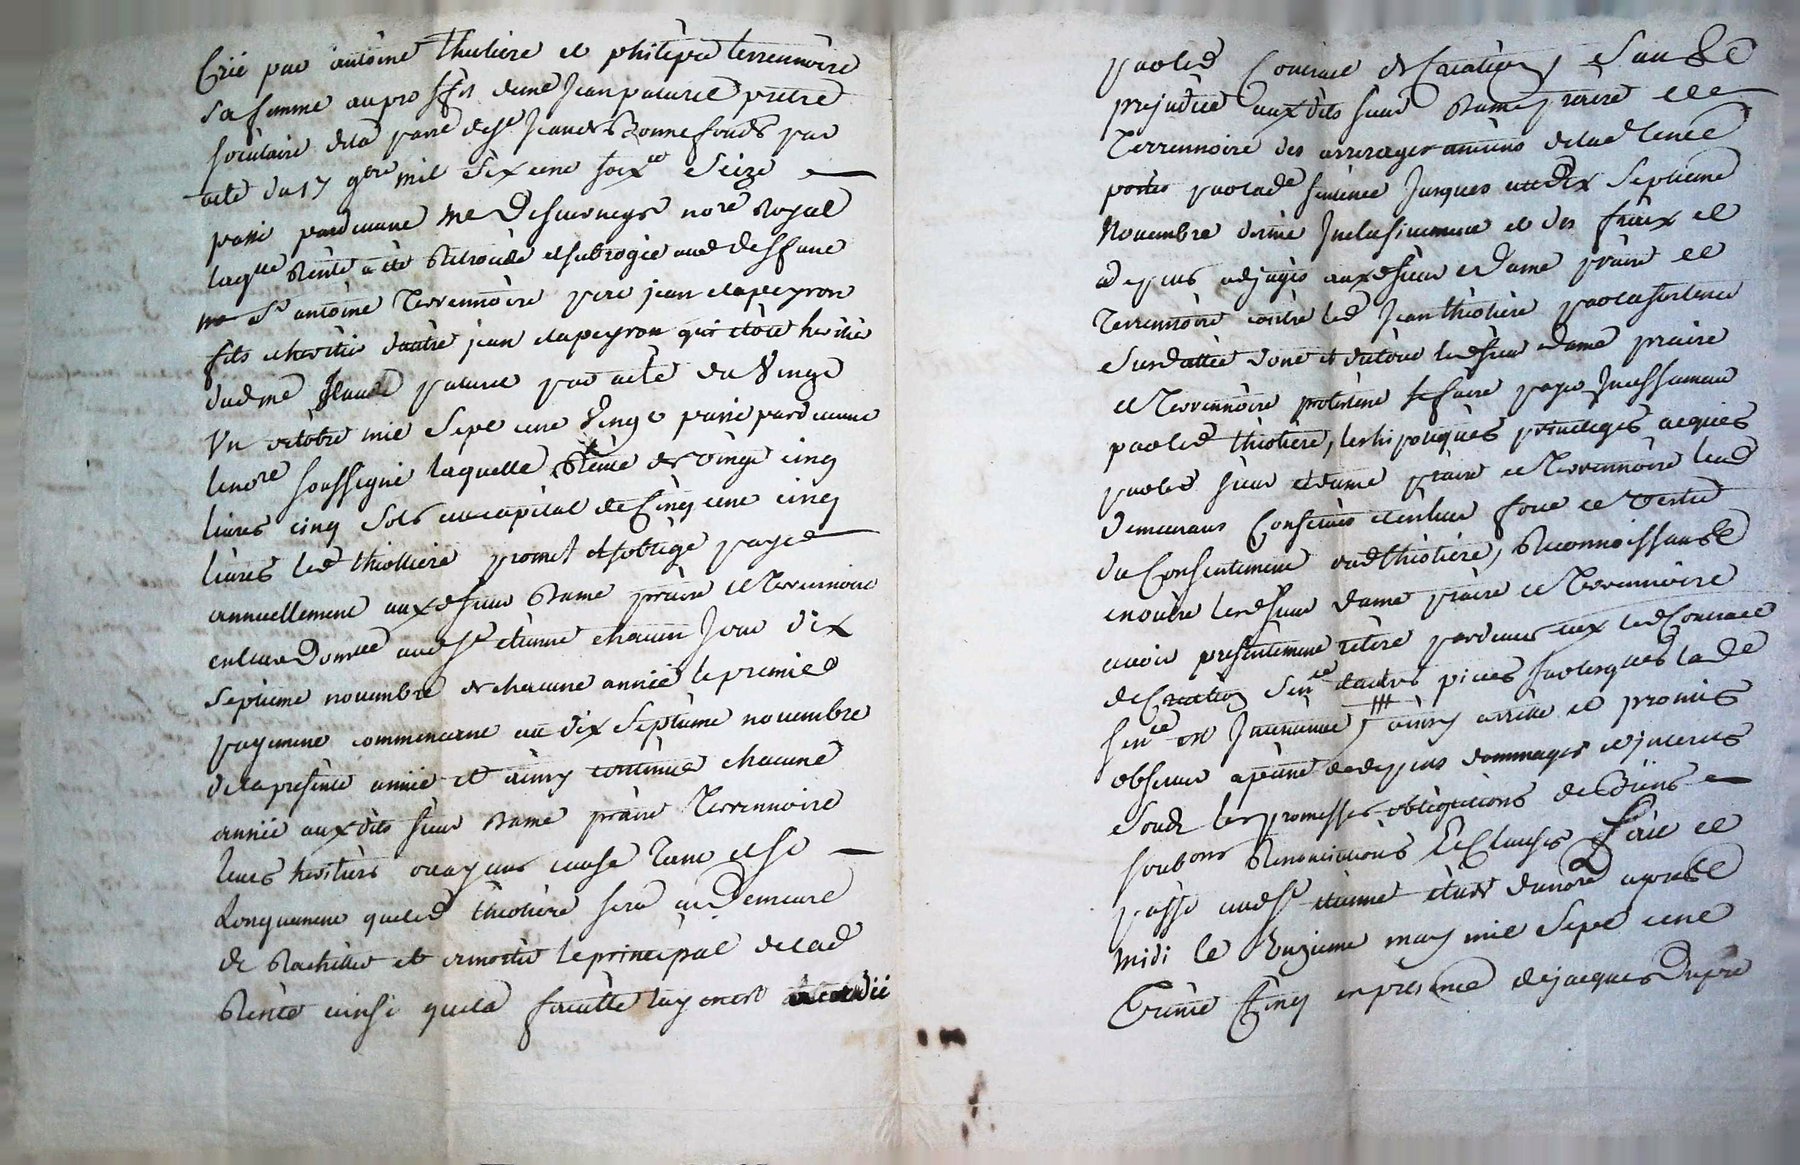 Crée par antoine thiolière et philipve terrennoire
sa femme au proffit de me Jean paturel pretre
sociétaire de la parre de st Jean de Bonnefonds par
acte du 17 9bre mil six cent soixte Seize
passé pardevant Me Descurneys nore Royal
laqlle Rente a été Retrocédé et subrogée aud deffunt
sr antoine Terrennoire par jean clapeyron
fils et heritier d'autre jean clapeyron qui etoit heritier
dud me paturel par acte du Vingt
Un octobre mil Sept cent Vingt passé pardevant
le nore soussigné laquelle Rente de vingt cinq
livres cinq sols au capital de Cinq cent cinq
livres led thiolliere promet et s'oblige payer
annuellement auxd sieur Dame prâire et Terrennoire
en leur Domlle aud st etienne chacun Jour dix
septieme novembre de chacune année le premier
payement commencant au dix Septieme novembre
de la presente année et ainsy continuer chacune
année aux dits sieur Dame prâire Terrennoire
leurs heritiers ou ayans cause tant et si
Longuement que led thiolière sera en Demeure
de Rachetter et amortir le principal de lad
Rente ainsi que la faculté luy en est accordée
par led Contract de Création, et sans
prejudice aux dits sieur Dame prâire et
Terrennoire des arrerages anciens de lad rente
portés par lade sentence Jusques au dix Septieme
Novembre dernier Inclusivement et des fraix et
depens adjugés auxd sieur et Dame prâire et
Terrennoire contre led Jean thiolière par la sentence
susdattée dont et du tout lesd sieur Dame prâire
et Terrennoire protestent se faire payer Incessament
par led thiolière, les hipoteques privileges acquis
par les sieur et dame prâire et Terrennoire leur
demeurans Conservés et en leur force et vertu
du Consentement dud thiolière, Reconnoissant
en outre lesd sieur Dame prâire et Terrennoire
avoir presentement retiré pardevers eux led Contract
de Création sence et autres pieces sur lesquels lade
sence est Intervenue, ainsy arrêté et promis
observer a peine de depens dommages et jnterets
et sous les promesses obligations de Biens
soubons Renonciations et Clauses Fait et
passé aud st etienne étude du nore après
midi le onzieme may mil Sept cent
Trente Cinq en presence de jacques Dupré